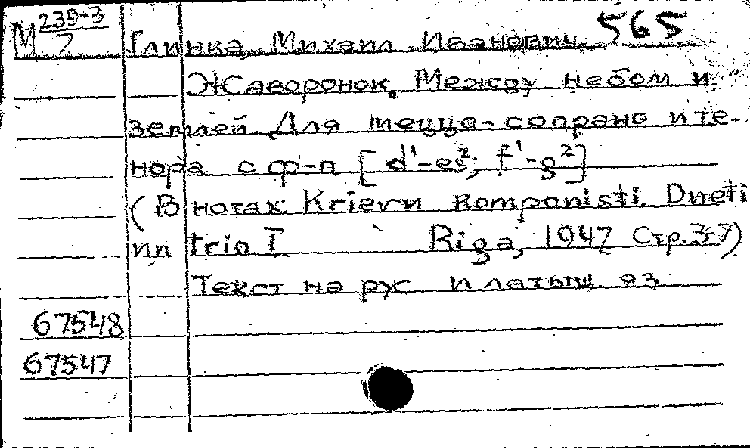 М 239-3/7
565
Глинка, Михаил Иванович.
Жаворонок. Между небом и
землей Для меццо-сопрано и те-
нора с ф-п [d'-es²; f'-g²]
(В нотах Krievu komponisti. Dueti
un trio I Riga, 1947 Стр. 3-7)
Текст на рус и латыш. яз
67548
67547